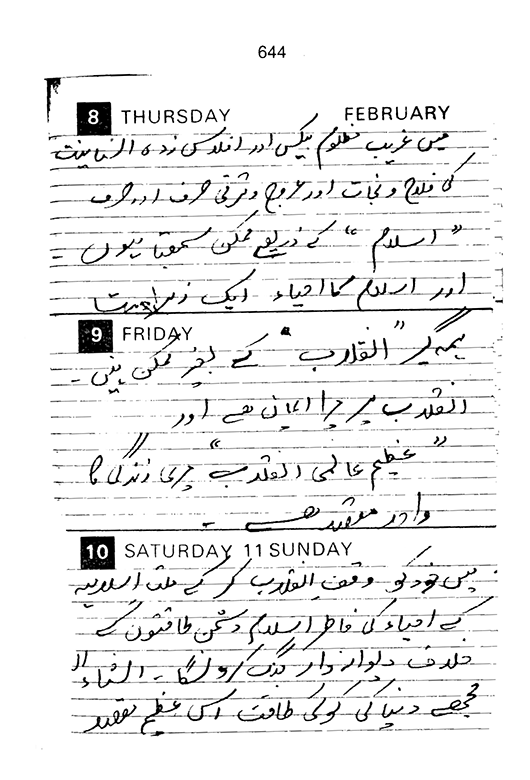 644
8 THURSDAY FEBRUARY
میں غریب مظلوم بیکس اور افلاس زدہ انسانیت
کی فلاح و نجات اور عروج و ترقی صرف اور صرف
"اسلام" کے ذریعے ممکن سمجھتا ہوں -
اور اسلام کا احیاء ایک زبردست
9 FRIDAY
ہمہ گیر "انقلاب" کے بغیر ممکن نہیں -
انقلاب پر میرا ایمان ہے اور
"عظیم عالمی انقلاب" میری زندگی کا
واحد مقصد ہے -
10 SATURDAY 11 SUNDAY
میں خود کو وقف انقلاب کر کے ملت اسلامیہ
کے احیاء کی خاطر اسلام دشمن طاقتوں کے
خلاف دیوانہ وار جنگ کرونگا - انشاء اللہ
مجھے دنیا کی کوئی طاقت اس عظیم مقصد